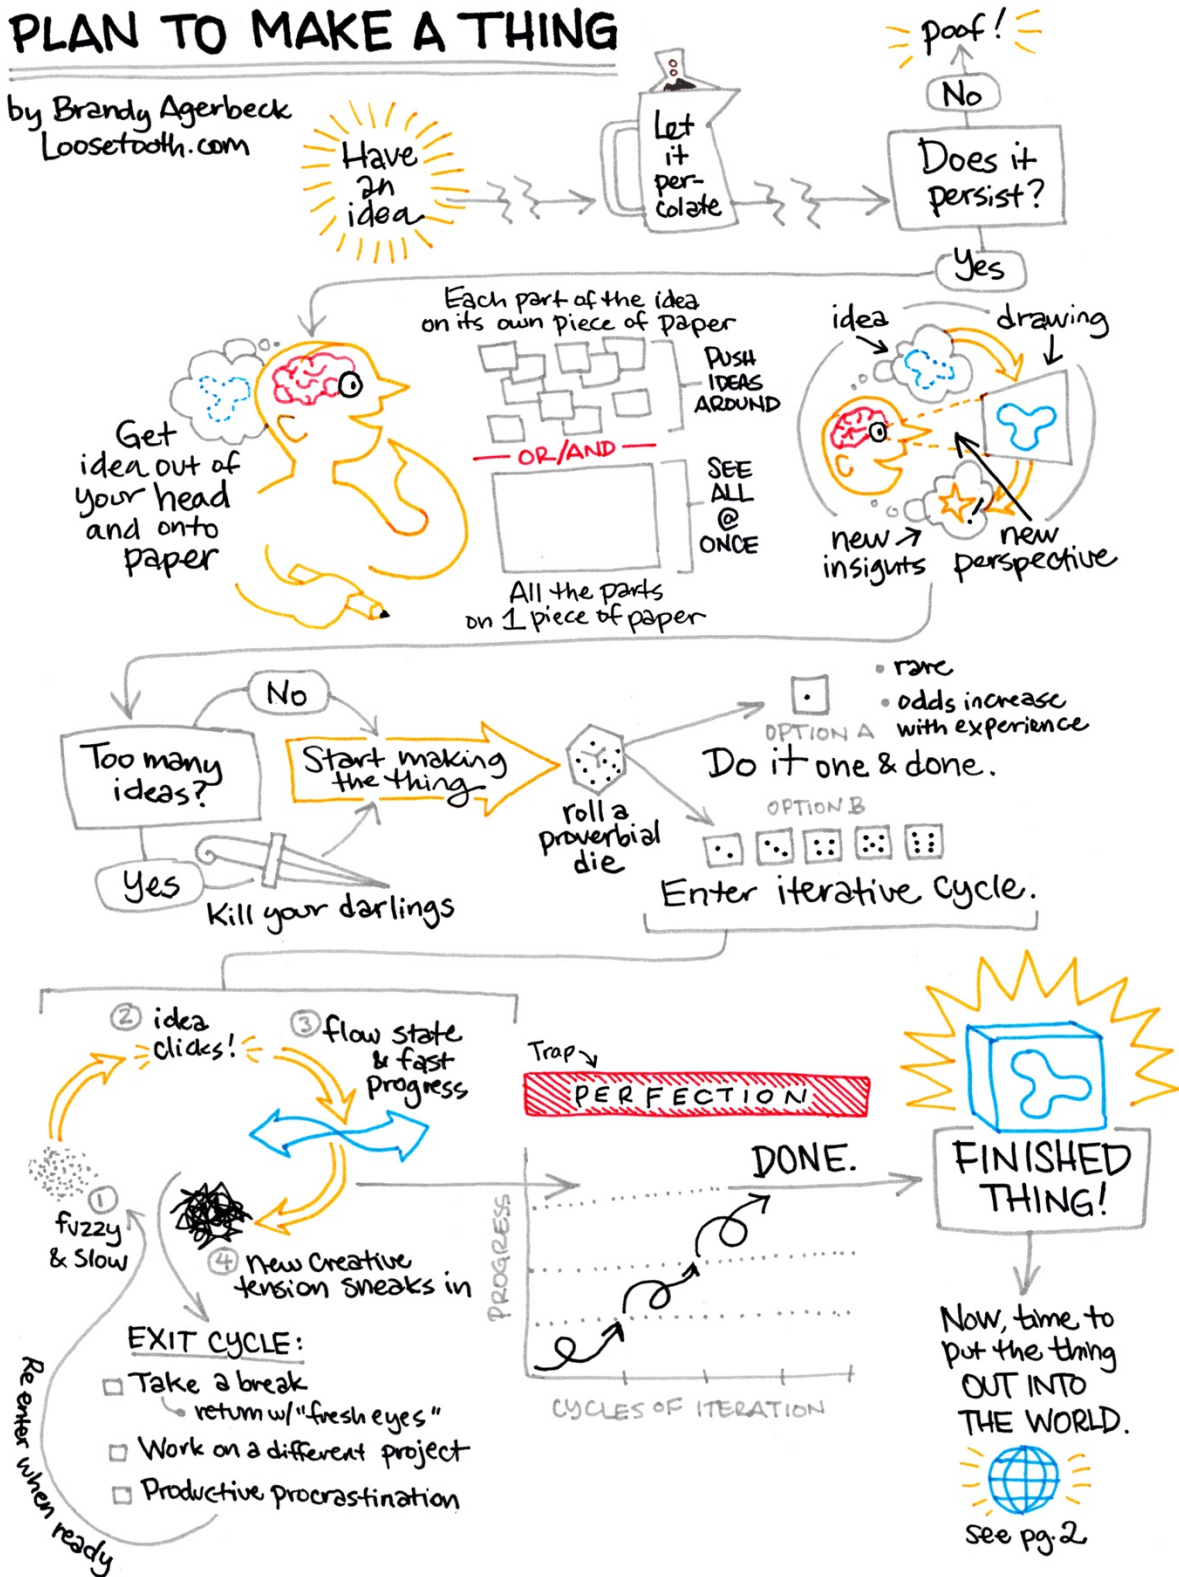 PLAN TO MAKE A THING
by Brandy Agerbeck
Loosetooth.com
Have
an
idea
Let
it
per-
colate
poof!
No
Does it
persist?
Yes
Get
idea out of
your head
and onto
paper
Each part of the idea
on its own piece of paper
PUSH
IDEAS
AROUND
OR/AND
SEE
ALL
@
ONCE
All the parts
on 1 piece of paper
idea
drawing
new
insights
new
perspective
Too many
ideas?
No
Yes
Kill your darlings
Start making
the thing
roll a
proverbial
die
OPTION A
• rare
• odds increase
with experience
Do it one & done.
OPTION B
Enter iterative cycle.
1
fuzzy
& slow
2 idea
clicks!
3 flow state
& fast
progress
4 new creative
tension sneaks in
EXIT CYCLE:
Take a break
return w/"fresh eyes"
Work on a different project
Productive procrastination
Re enter when ready
Trap
PERFECTION
DONE.
PROGRESS
CYCLES OF ITERATION
FINISHED
THING!
Now, time to
put the thing
OUT INTO
THE WORLD.
see pg.2